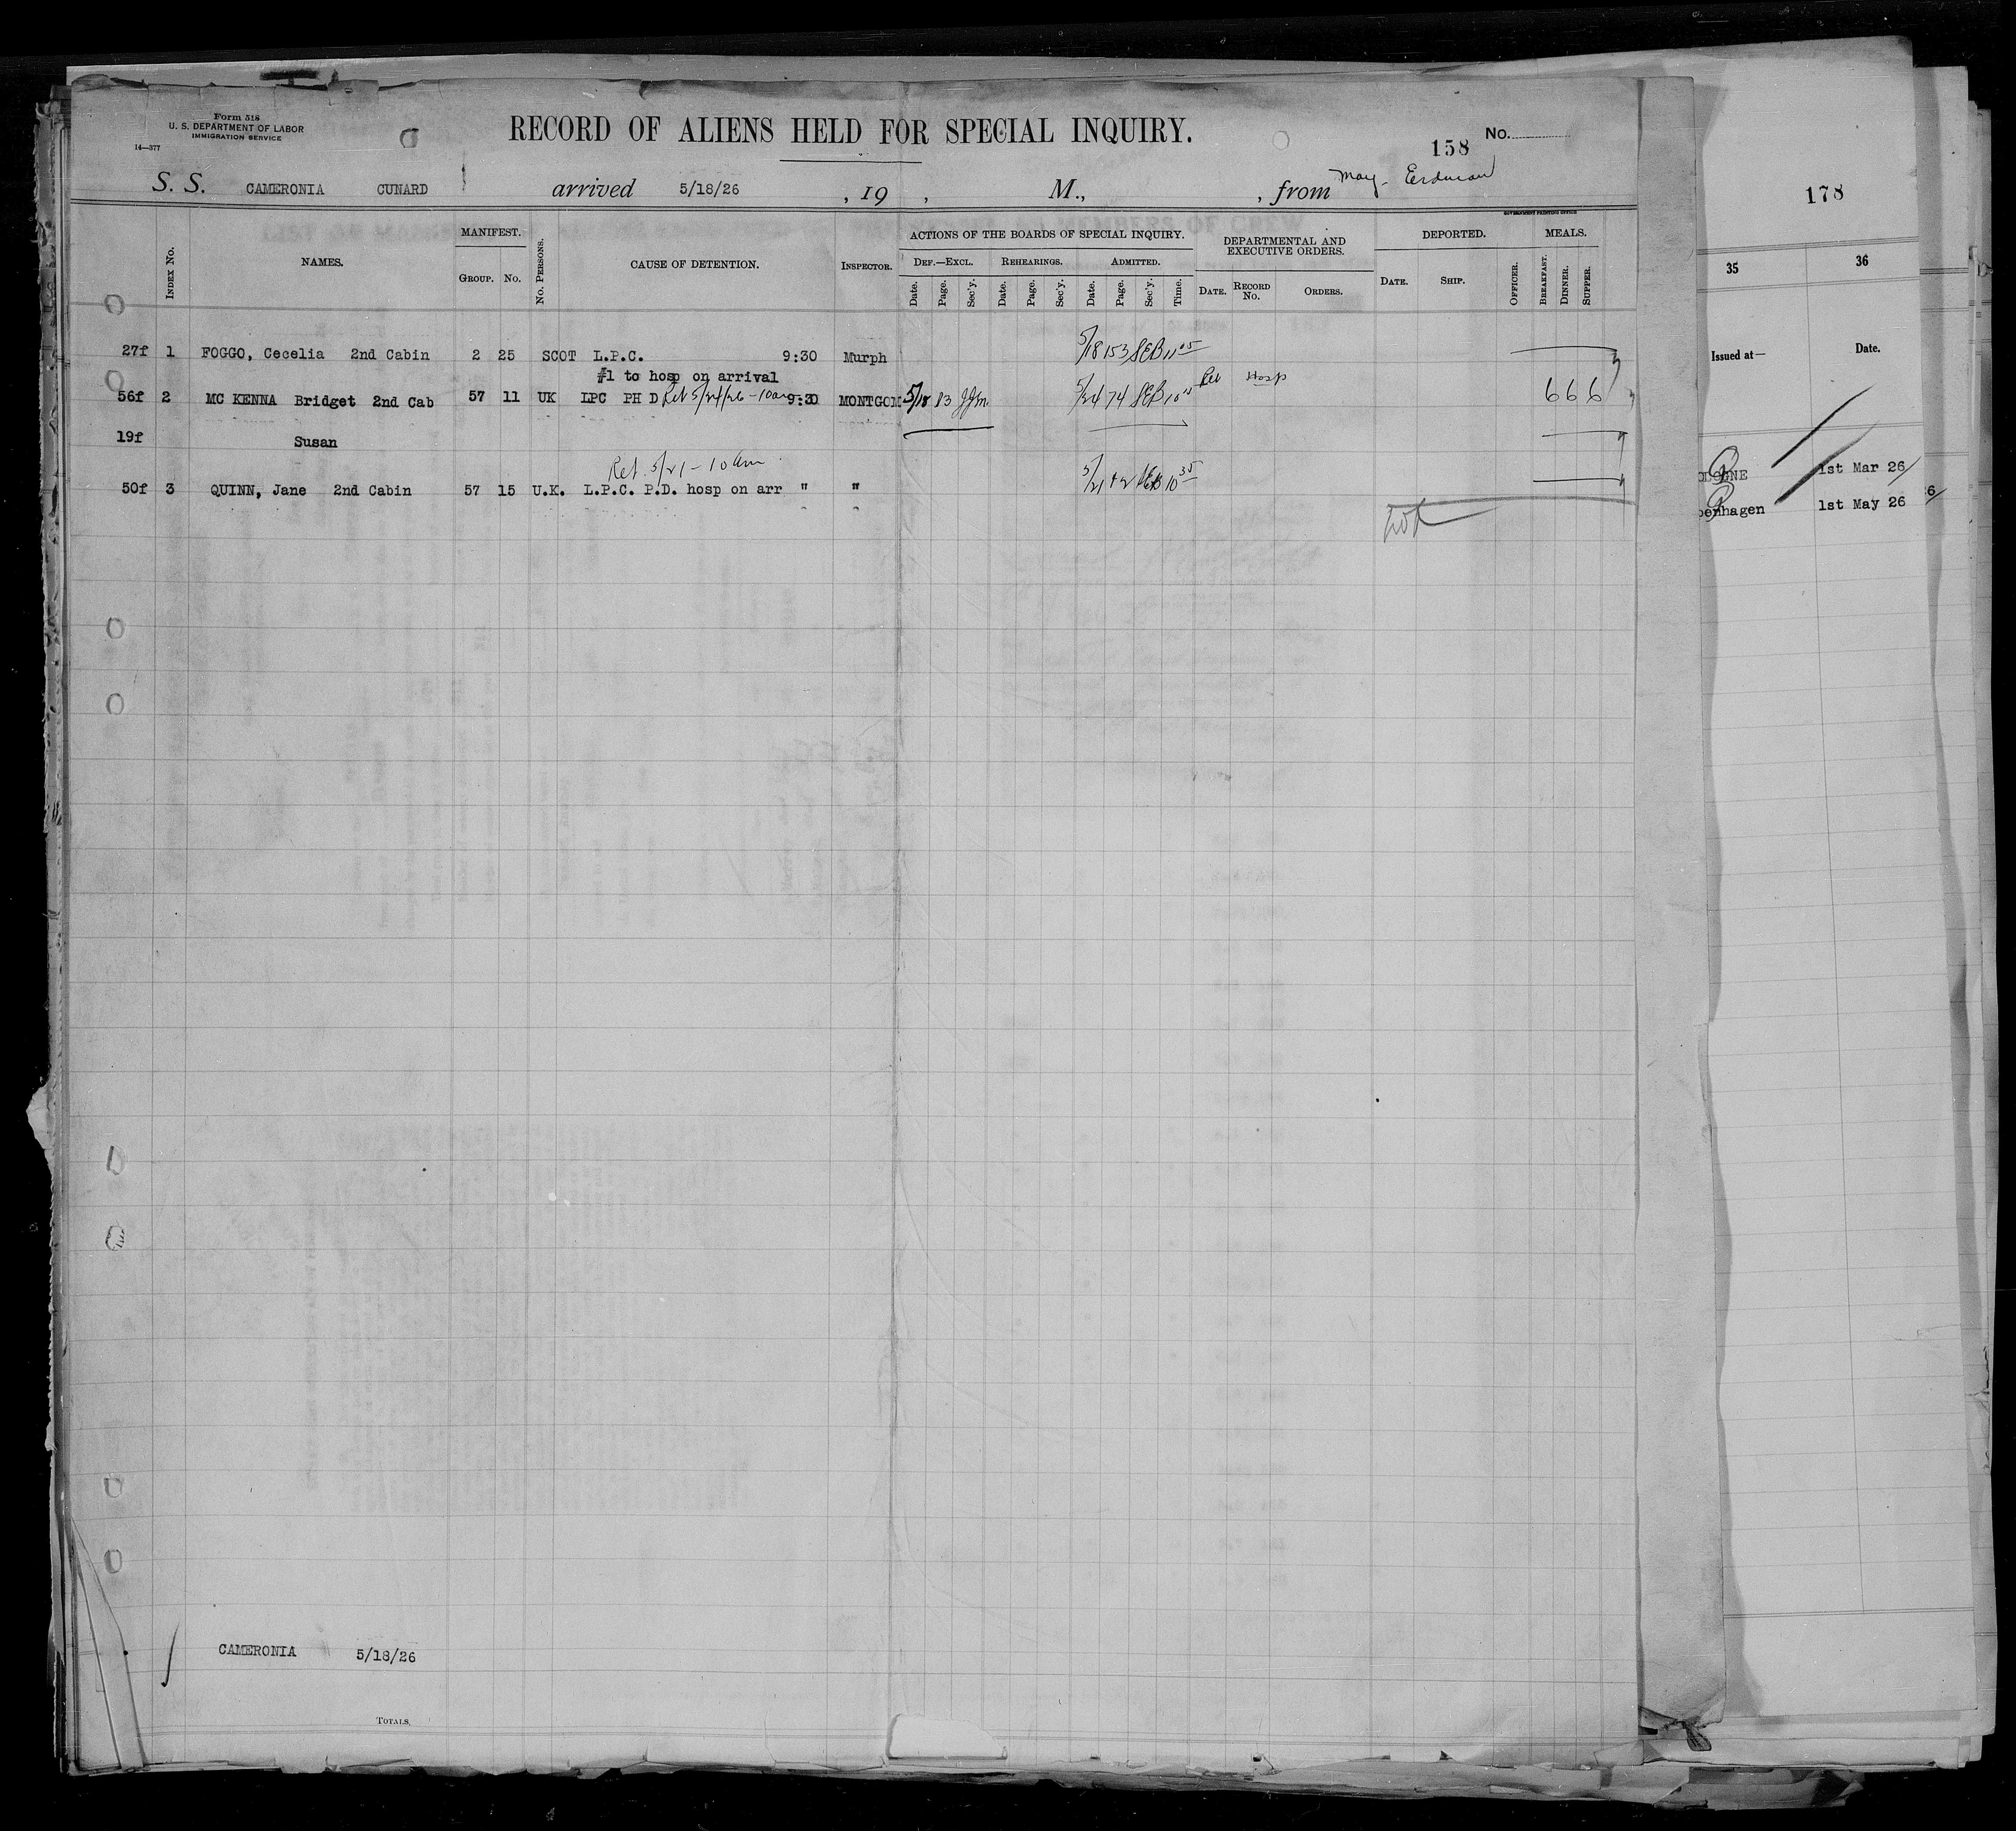 Form 518
U. S. DEPARTMENT OF LABOR
IMMIGRATION SERVICE
14—377
RECORD OF ALIENS HELD FOR SPECIAL INQUIRY.
No.
158
S. S. CAMERONIA CUNARD arrived 5/18/26 , 19 , M., , from
178
GOVERNMENT PRINTING OFFICE
INDEX NO.
NAMES.
MANIFEST.
GROUP. NO.
NO. PERSONS.
CAUSE OF DETENTION.
INSPECTOR.
ACTIONS OF THE BOARDS OF SPECIAL INQUIRY.
DEF.—EXCL. REHEARINGS. ADMITTED.
Date. Page. Sec'y. Date. Page. Sec'y. Date. Page. Sec'y. Time.
DEPARTMENTAL AND
EXECUTIVE ORDERS.
DATE. RECORD NO. ORDERS.
DEPORTED.
DATE. SHIP. OFFICER.
MEALS.
BREAKFAST. DINNER. SUPPER.
35 36
Issued at— Date.
27f 1 FOGGO, Cecelia 2nd Cabin 2 25 SCOT L.P.C. 9:30 Murph 5/18 153 SEB 11 05
#1 to hosp on arrival
56f 2 MC KENNA Bridget 2nd Cab 57 11 UK LPC PH D Ret 5/24/26 - 10am 9:30 MONTGOM 5/18 83 JJM 5/24 74 SEB Hosp 6 6 6
19f Susan
Ret. 5/21 - 10 am
50f 3 QUINN, Jane 2nd Cabin 57 15 U.K. L.P.C. P.D. hosp on arr " " 5/21 10 35
OLOGNE 1st Mar 26
penhagen 1st May 26
CAMERONIA 5/18/26
TOTALS,